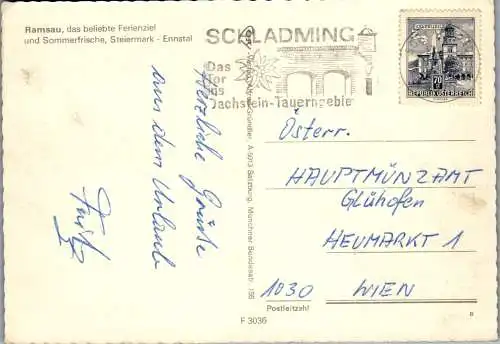 Ramsau, das beliebte Ferienziel
und Sommerfrische, Steiermark - Ennstal
SCHLADMING
Das
Tor
ins
Dachstein-Tauerngebiet
REPUBLIK ÖSTERREICH
70
Herzliche Grüße
aus dem Urlaub
Fritz
A-5073 Salzburg, Münchner Bundesstr. 156
Österr.
HAUPTMÜNZAMT
Glühofen
HEUMARKT 1
1030 WIEN
Postleitzahl
F 3036